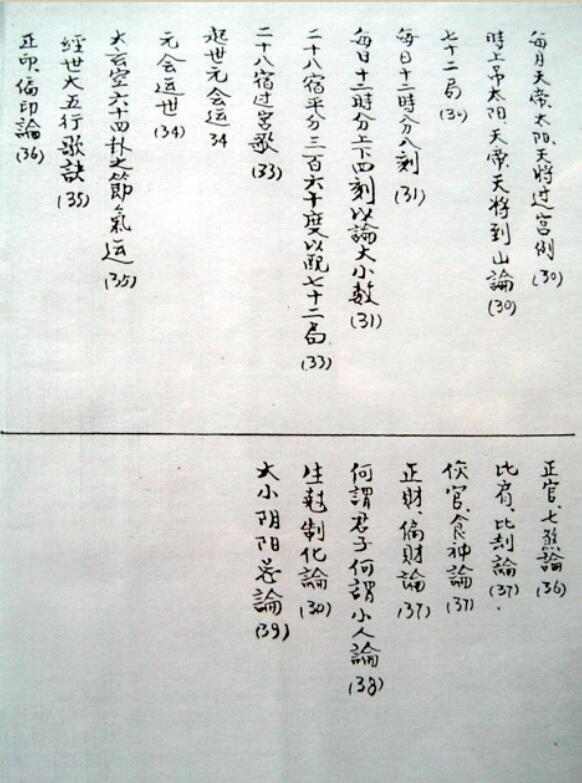 每月天帝太阳、天将过宫例(30)
時上吊太阳、天帝、天将到山論(30)
七十二局(30)
每日十二時分八刻(31)
每日十二時分上下四刻以論大小数(31)
二十八宿平分三百六十度以配七十二局(33)
二十八宿过宮歌(33)
起世元会运34
元会运世(34)
大玄空六十四卦之節氣运(35)
經世大五行歌訣(35)
正印、偏印論(36)
正官、七煞論(36)
比肩、比刼論(37)
伤官、食神論(37)
正財、偏財論(37)
何謂君子何謂小人論(38)
生尅制化論(30)
大小阴阳 論(39)